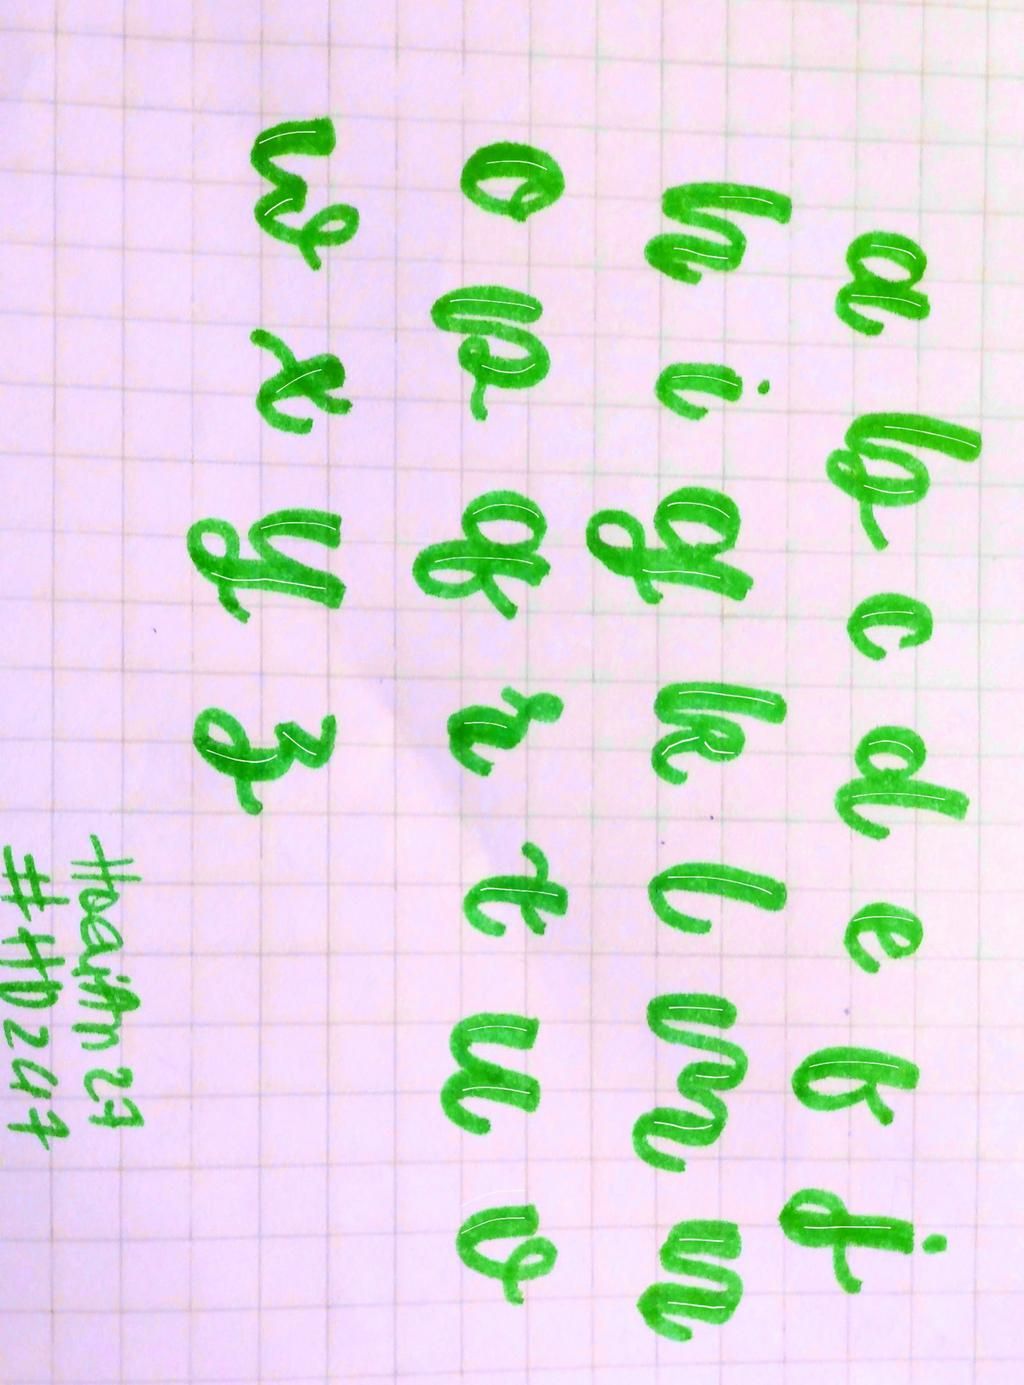 a b c d e f j
h i g k l m n
o p q r t u v
w x y z
HoaiAn 27
#HD247